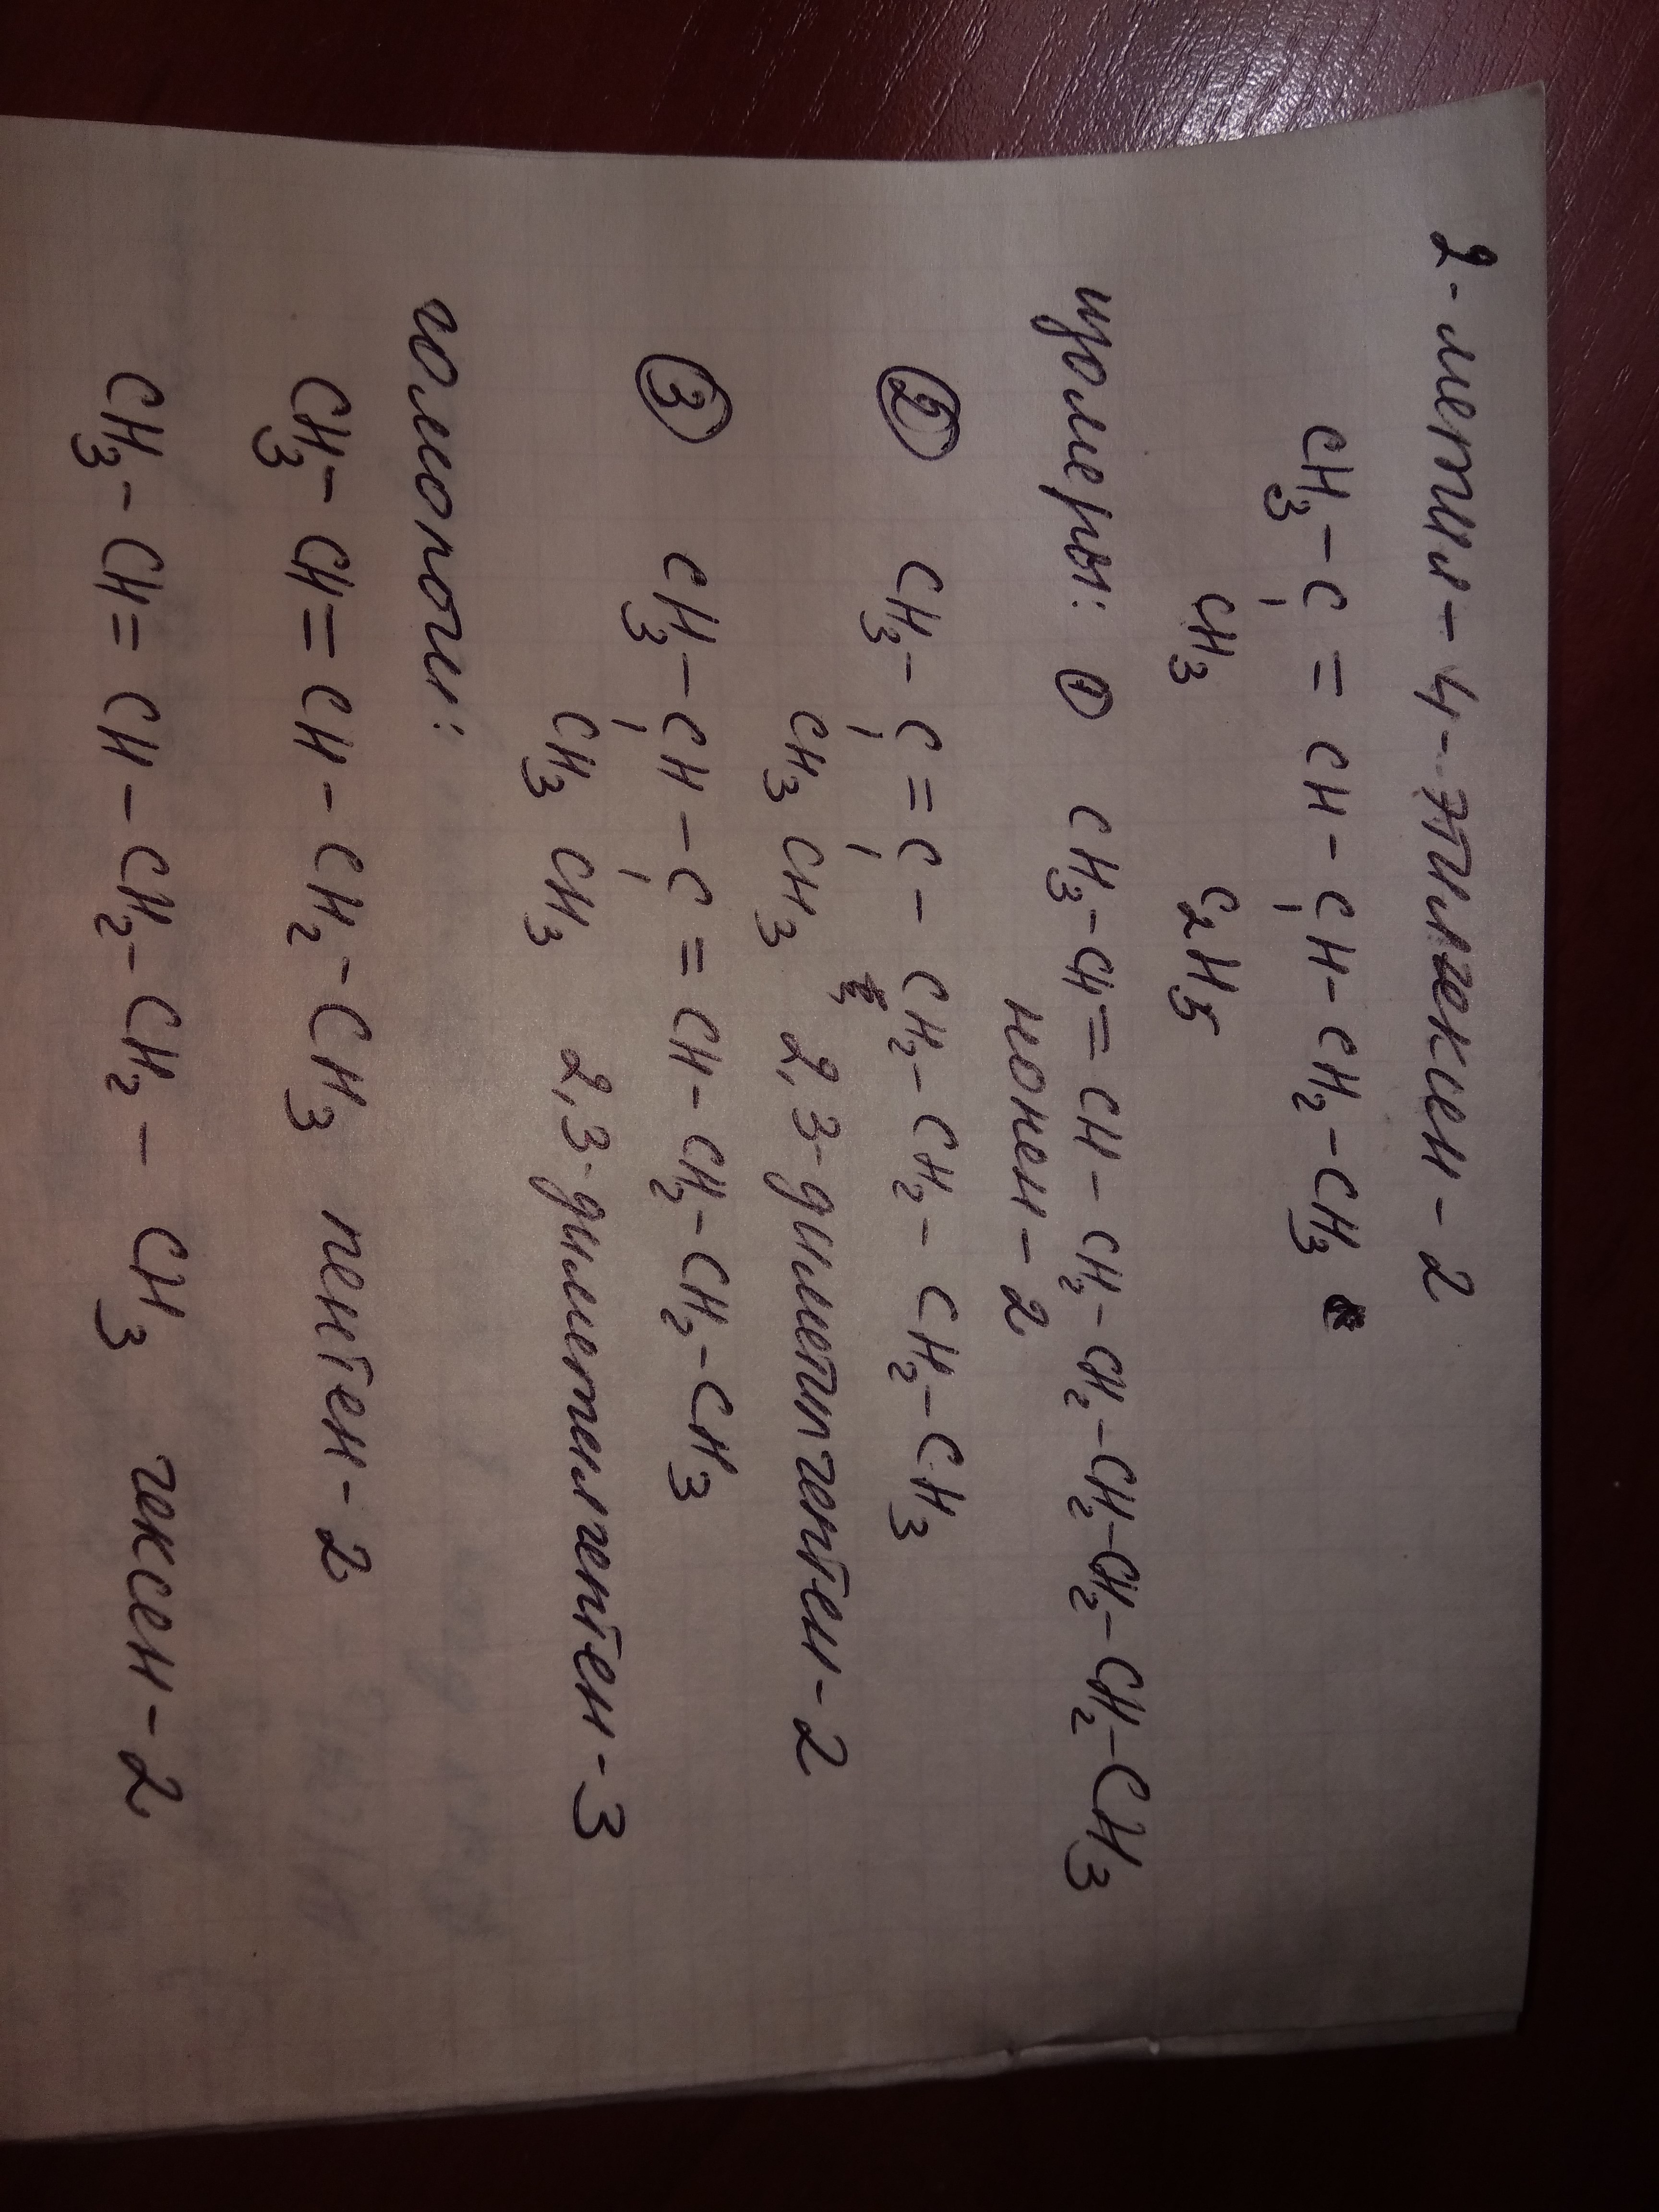 2-метил-4-этилгексен-2
CH3-C=CH-CH-CH2-CH3
CH3 C2H5
изомеры: ① CH3-CH=CH-CH2-CH2-CH2-CH2-CH2-CH3
нонен-2
② CH3-C=C-CH2-CH2-CH2-CH3
CH3 CH3 2,3-диметилгептен-2
③ CH3-CH-C=CH-CH2-CH2-CH3
CH3 CH3 2,3-диметилгептен-3
гомологи:
CH3-CH=CH-CH2-CH3 пентен-2
CH3-CH=CH-CH2-CH2-CH3 гексен-2